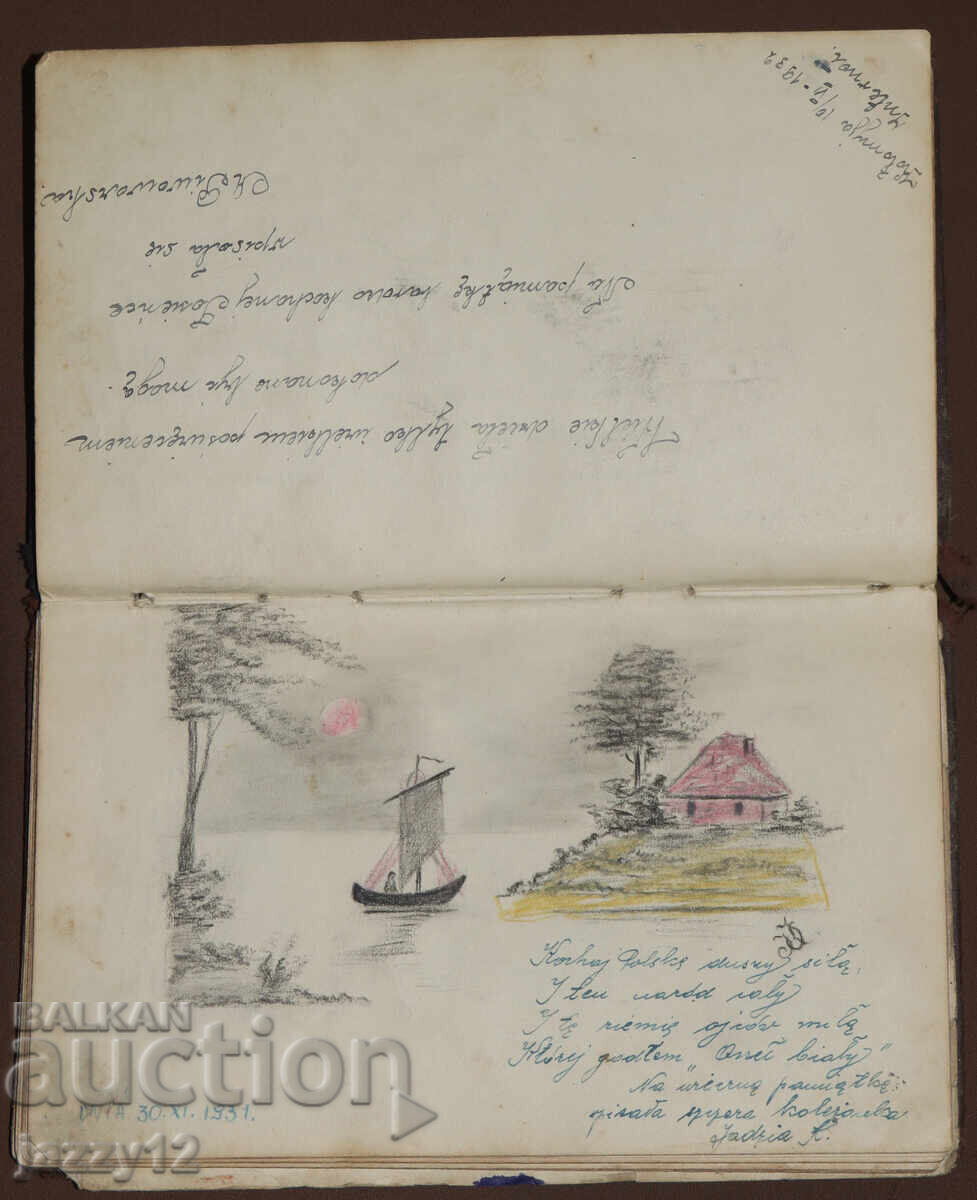 Wielkie dzieła tylko wielkiem poświęceniem
dokonane być mogą.
Na pamiątkę kochanej
wpisała się
Piwowarska
Kołomyja 10/II-1932
Internat.
Kochaj Polskę duszy siłą,
I ten naród cały
I tę ziemię ojców miłą
Której godłem "Orzeł biały"
Na wieczną pamiątkę
pisała szczera koleżanka
Jadzia K.
DNIA 30.XI.1931.
BALKAN
auction
jazzy12